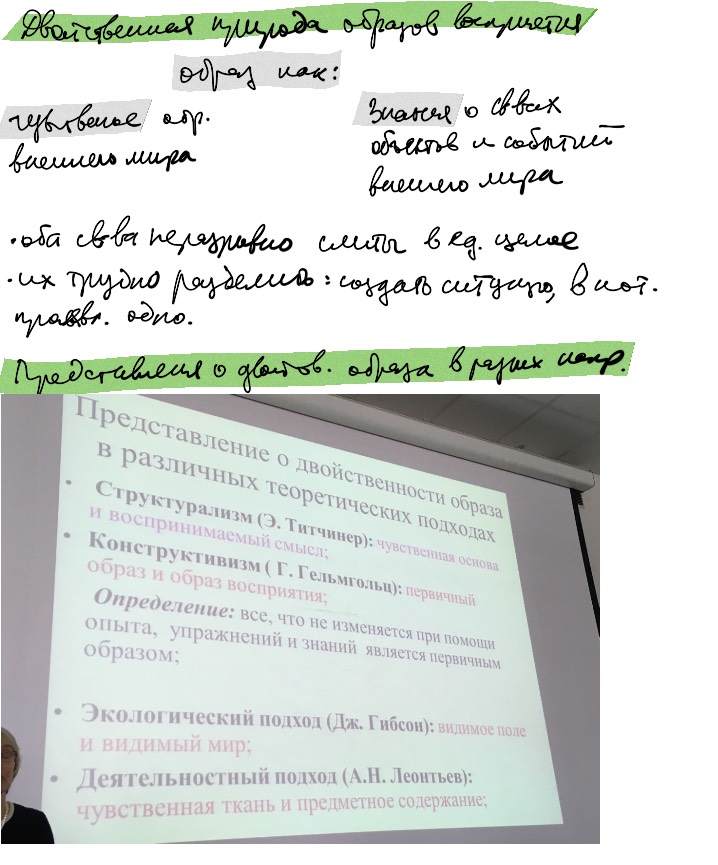 Двойственная природа образов восприятия
образ как:
чувственное обр.
внешнего мира
Знания о св-вах
объектов и событий
внешнего мира
• оба св-ва неразрывно слиты в ед. целое
• их трудно разделить: создать ситуацию, в кот.
правл. одно.
Представления о двойств. образа в разных напр.
Представление о двойственности образа
в различных теоретических подходах
• Структурализм (Э. Титчинер): чувственная основа
и воспринимаемый смысл;
• Конструктивизм ( Г. Гельмгольц): первичный
образ и образ восприятия;
Определение: все, что не изменяется при помощи
опыта, упражнений и знаний является первичным
образом;
• Экологический подход (Дж. Гибсон): видимое поле
и видимый мир;
• Деятельностный подход (А.Н. Леонтьев):
чувственная ткань и предметное содержание;